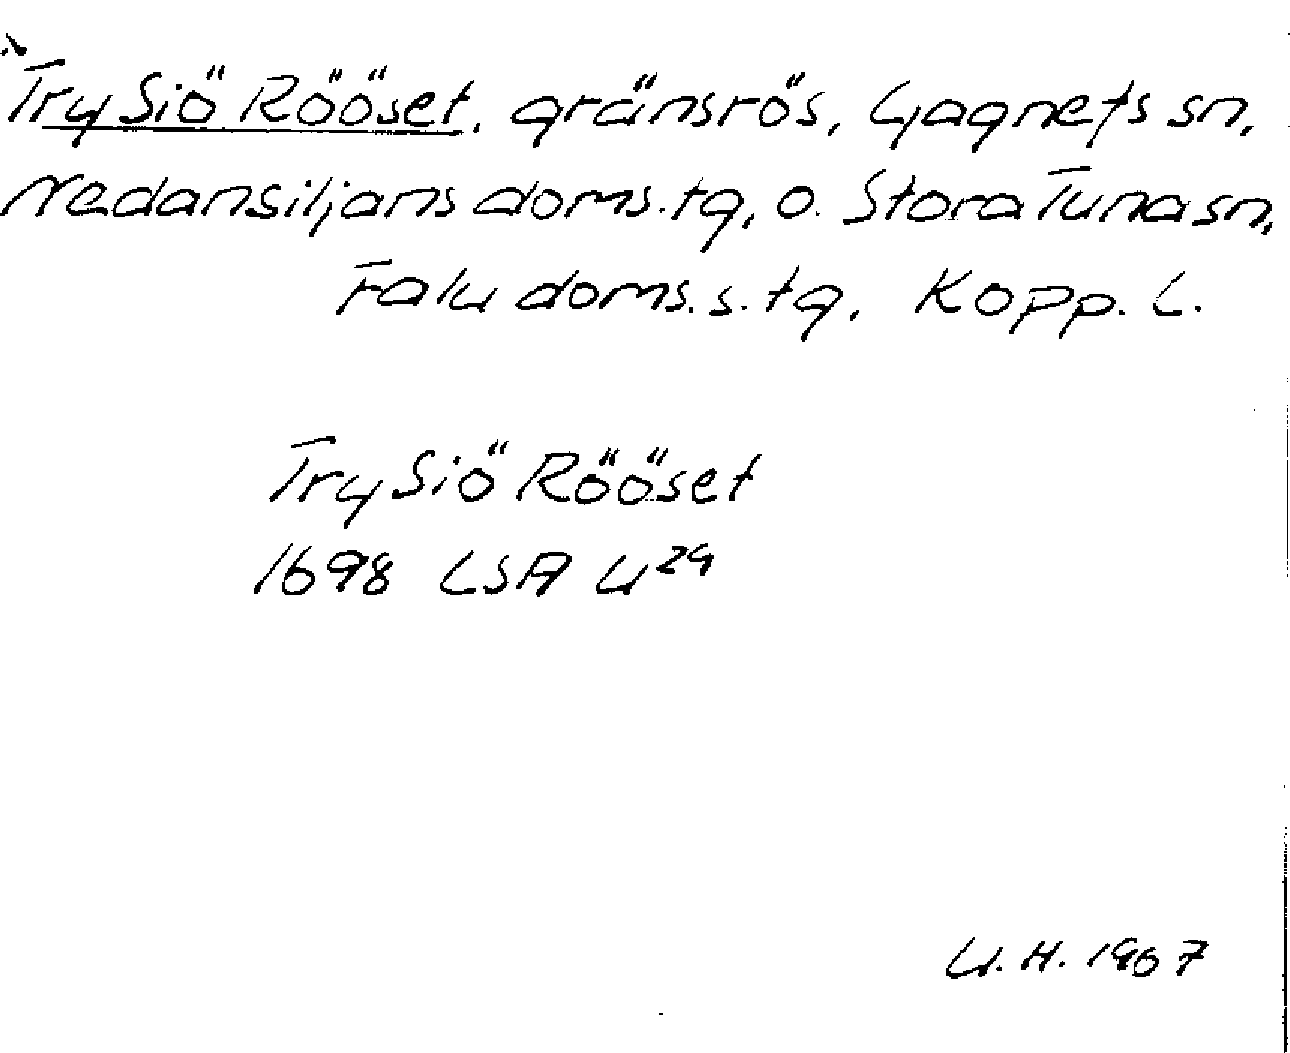 Try Siö Rööset, gränsrös, Gagnefs sn,
Nedansiljans doms.tg, o. Stora Tuna sn,
Falu doms.s.tg, Kopp. L.
Try Siö Rööset
1698 LSA U²⁹
U.H. 1967